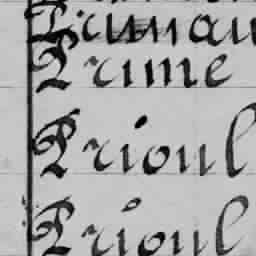 Prime
Prioul
Prioul